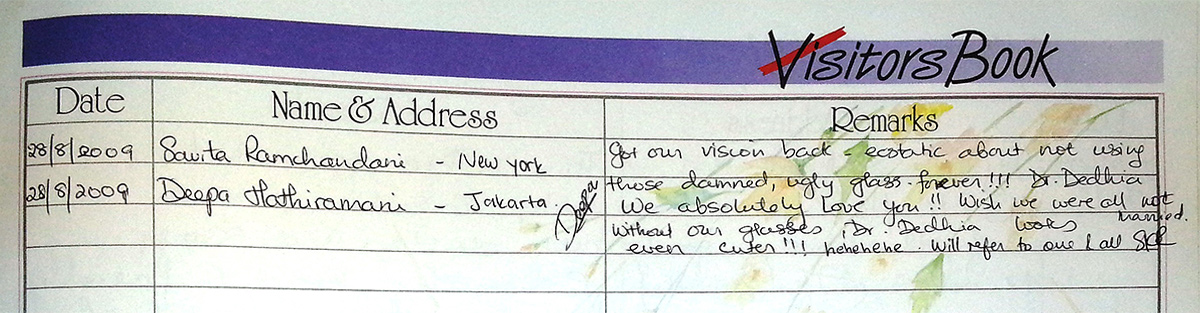 Visitors Book
Date Name & Address Remarks
28/8/2009 Savita Ramchandani - New york Got our vision back - ecstatic about not using
28/8/2009 Deepa Hathiramani - Jakarta. Deepa those damned, ugly glass forever!!! Dr. Dedhia
We absolutely love you!! Wish we were all not married.
Without our glasses, Dr. Dedhia looks
even cuter!!! hehehehe. Will refer to one & all